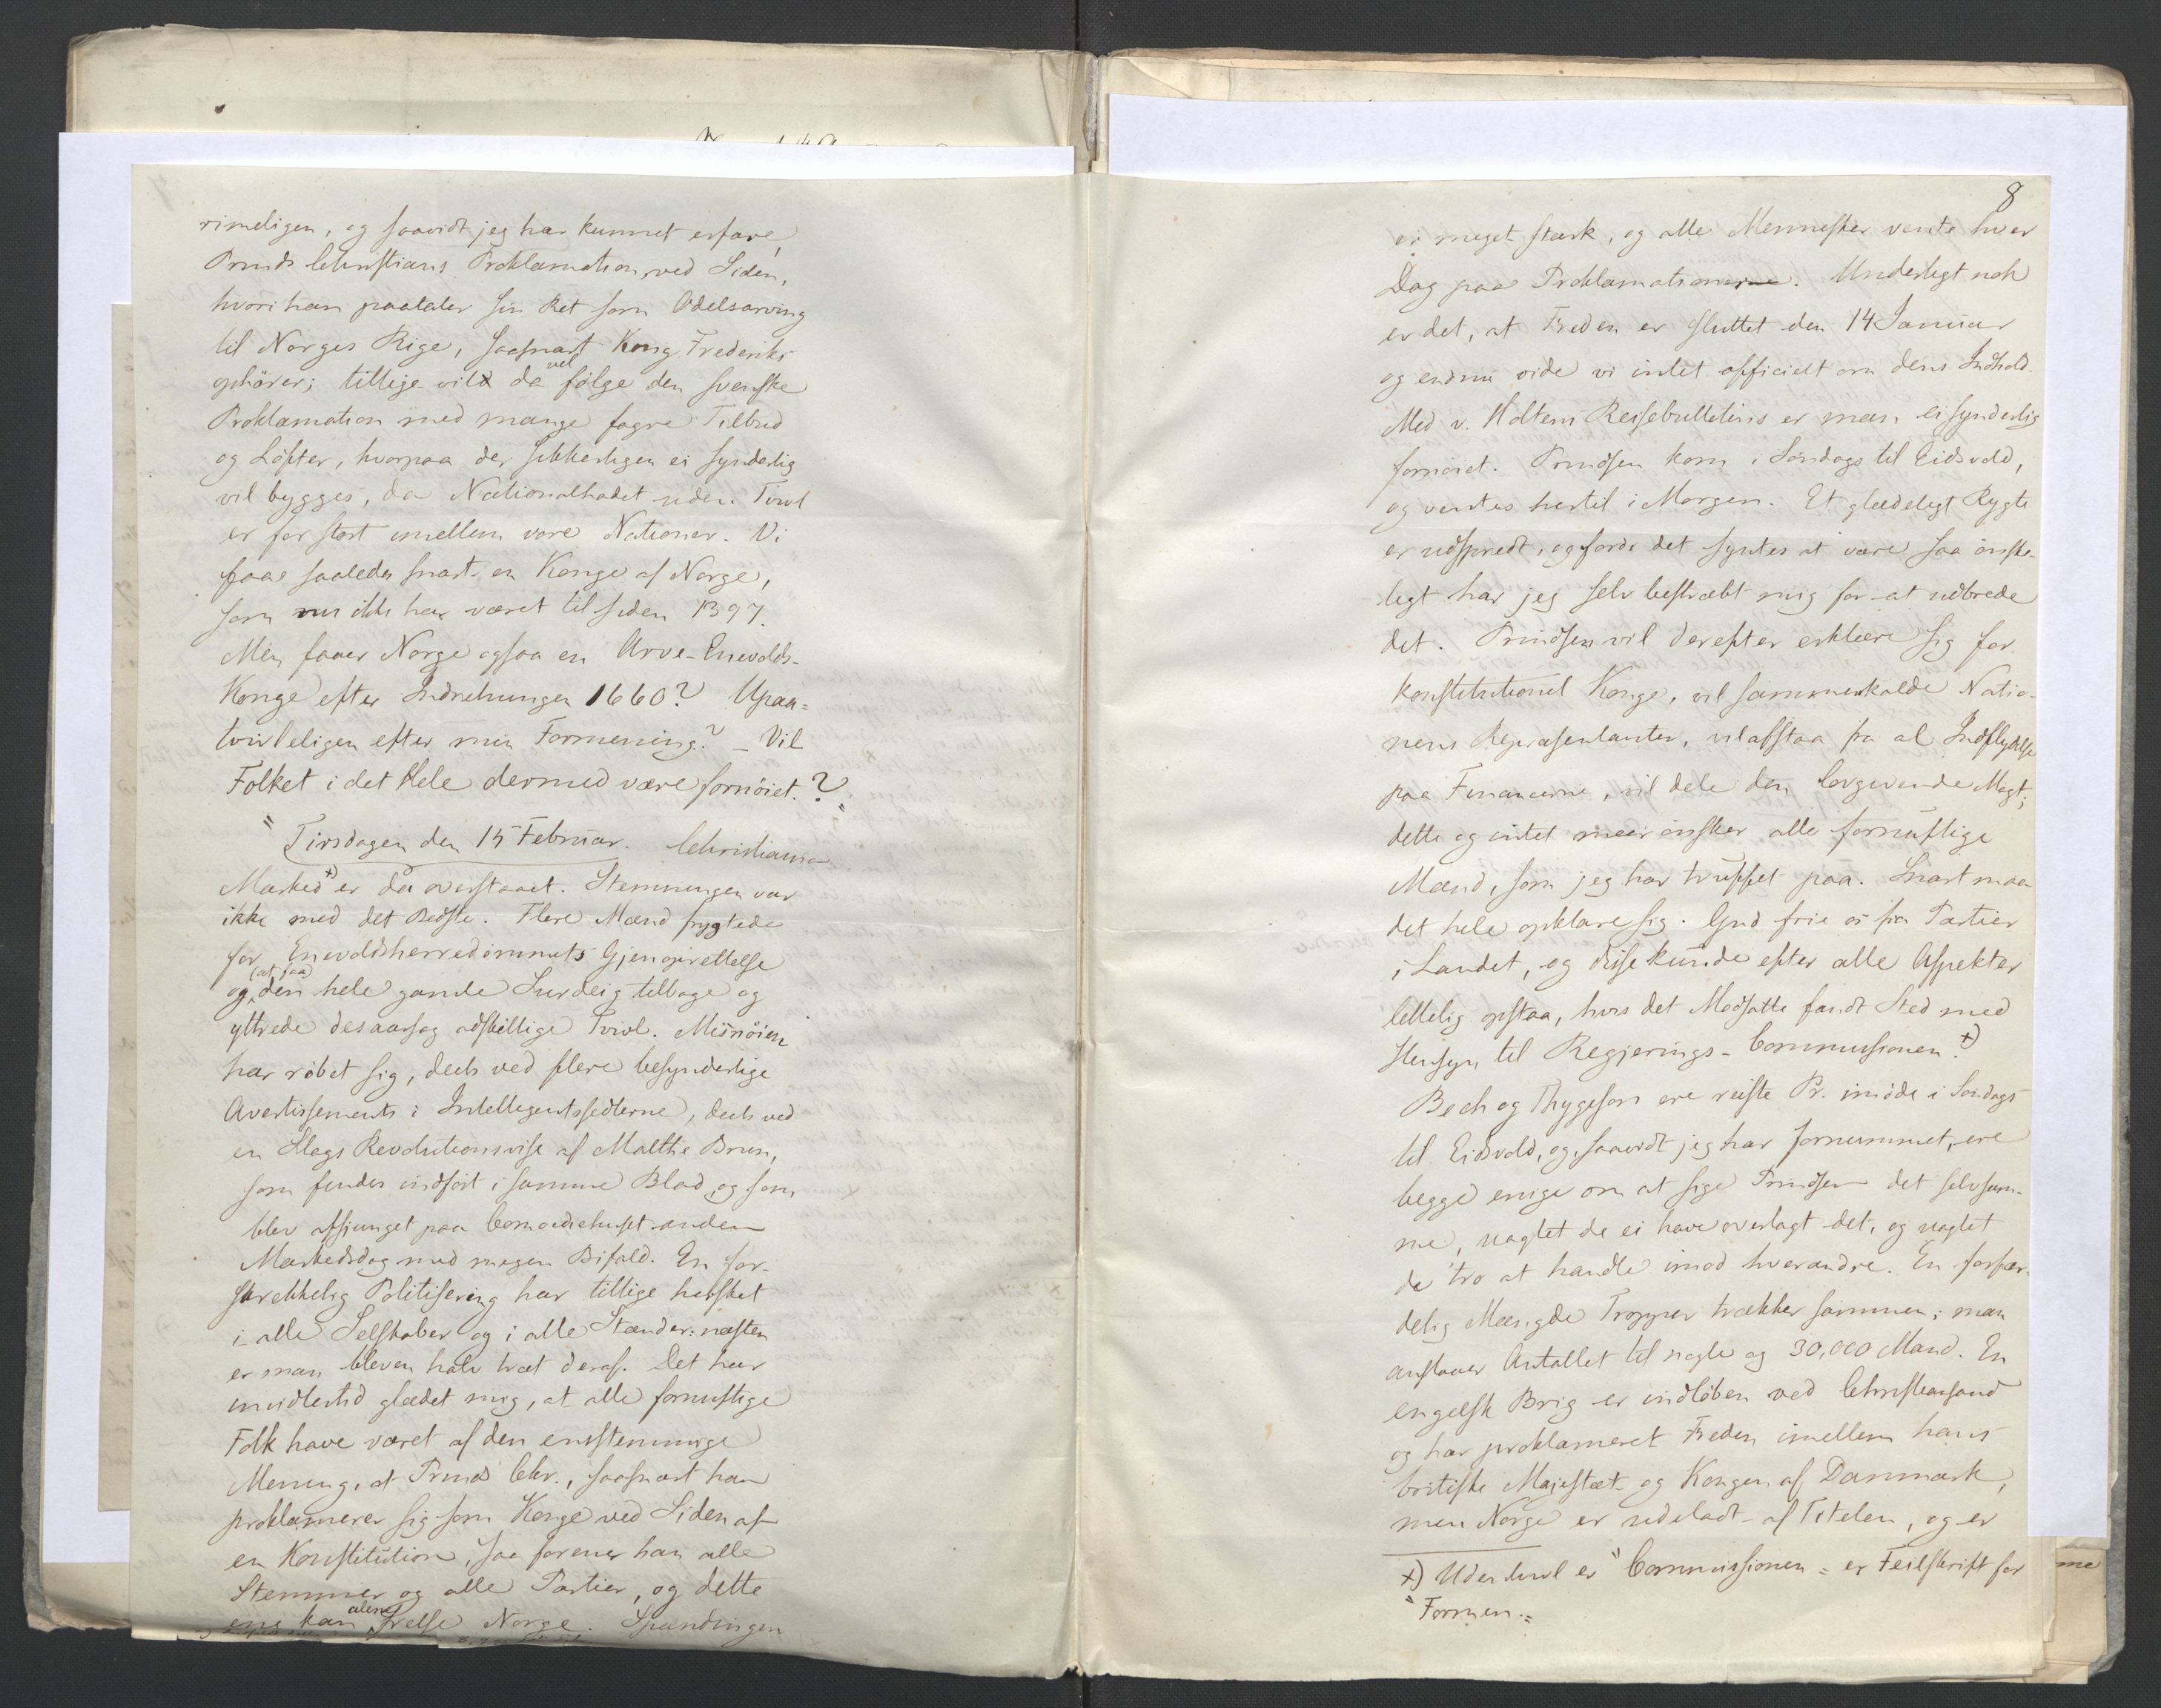 rimeligen, og saavidt jeg har kunnet erfare,
Prinds Christians Proklamation ved Siden,
hvori han paataler sin Ret som Odelsarving
til Norges Rige, saasnart Kong Frederiks
ophører; tillige vil da vel følge den svenske
Proklamation med mange fagre Tilbud
og Løfter, hvorpaa der sikkerligen ei synderlig
vil bygges, da Nationalhadet uden Tvivl
er for stort imellem vore Nationer. Vi
faae saaledes snart en Konge af Norge,
som ikke har været til siden 1397.
Men faaer Norge ogsaa en Arve-Enevolds-
Konge efter Indretningen 1660? Upaa=
tvivleligen efter min Formening? – Vil
Folket i det Hele dermed være fornöiet.?"
"Tirsdagen den 15 Februar. Christiania
Marked +) er da overstaaet. Stemningen var
ikke med det Bedste. Flere Mænd frygtede
for Enevoldsherredømmets Gjenoprettelse
og (at faa) den hele gamle Surdeig tilbage og
yttrede desaarsag adskillige Tvivl. Misnöien
har röbet sig, deels ved flere besynderlige
Avertissements i Intelligentssedlerne, deels ved
en Slags Revolutionsvise af Malthe Brun,
som findes indfört i samme Blad, og som
blev afsjunget paa Comoediehuset anden
Markedsdag med megen Bifald. En for-
skrekkelig Politisering har tillige hersket
i alle Selskaber og i alle Stænder: næsten
er man bleven halv træt deraf. Det har
imidlertid glædet mig, at alle fornuftige
Folk have været af den enstemmige
Mening, at Prinds Chr., saasnart han
proklamerer sig som Konge ved Siden af
en Konstitution, saa forener han alle
Stemmer og alle Partier, og dette
ene kan alene frelse Norge. Spændingen
8
er meget stærk, og alle Mennesker vente hver
Dag paa Proklamationerne. Underligt nok
er det, at Freden er sluttet den 14 Januar
og endnu vide vi intet officielt om dens Indhold.
Med v. Holtens Reisebulletins er man ei synderlig
fornöiet. Prindsen kom i Söndags til Eidsvold,
og ventes hertil i Morgen. Et glædeligt Rygte
er udspredt, og fordi det syntes at være saa önske-
ligt har jeg selv bestræbt mig for at udbrede
det. Prindsen vil derefter erklære sig for
konstitutionel Konge, vil sammenkalde Natio-
nens Repræsentanter, vil afstaa fra al Indflydelse
paa Financerne, vil dele den lovgivende Magt;
dette og intet meer önsker alle fornuftige
Mænd, som jeg har truffet paa. Snart maa
det hele opklare sig. Gud frie os fra Partier
i Landet, og disse kunde efter alle Aspekter
lettelig opstaa, hvis det Modsatte fandt Sted med
Hensyn til Regjerings-Commissionen. +)
Bech og Thygeson ere reiste Pr. imöde i Söndags
til Eidsvold, og, saavidt jeg har fornummet, ere
begge enige om at sige Prindsen det selvsam-
me, uagtet de ei have overlagt det, og uagtet
de tro at handle imod hverandre. En forfær-
delig Mængde Tropper trækker sammen; man
anslaaer Antallet til nogle og 30,000 Mand. En
engelsk Brig er indlöben ved Christiansand
og har proklameret Freden imellem hans
britiske Majestæt og Kongen af Danmark,
men Norge er udeladt af Titelen, og er
+) Uden tvivl er "Commissionen" er Feilskrift for
"Formen."